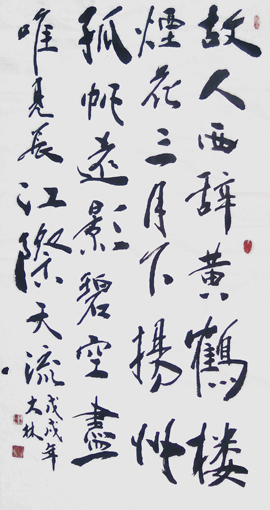 故人西辞黄鶴楼
煙花三月下揚州
孤帆遠影碧空盡
唯見長江際天流
戊戌年
大林